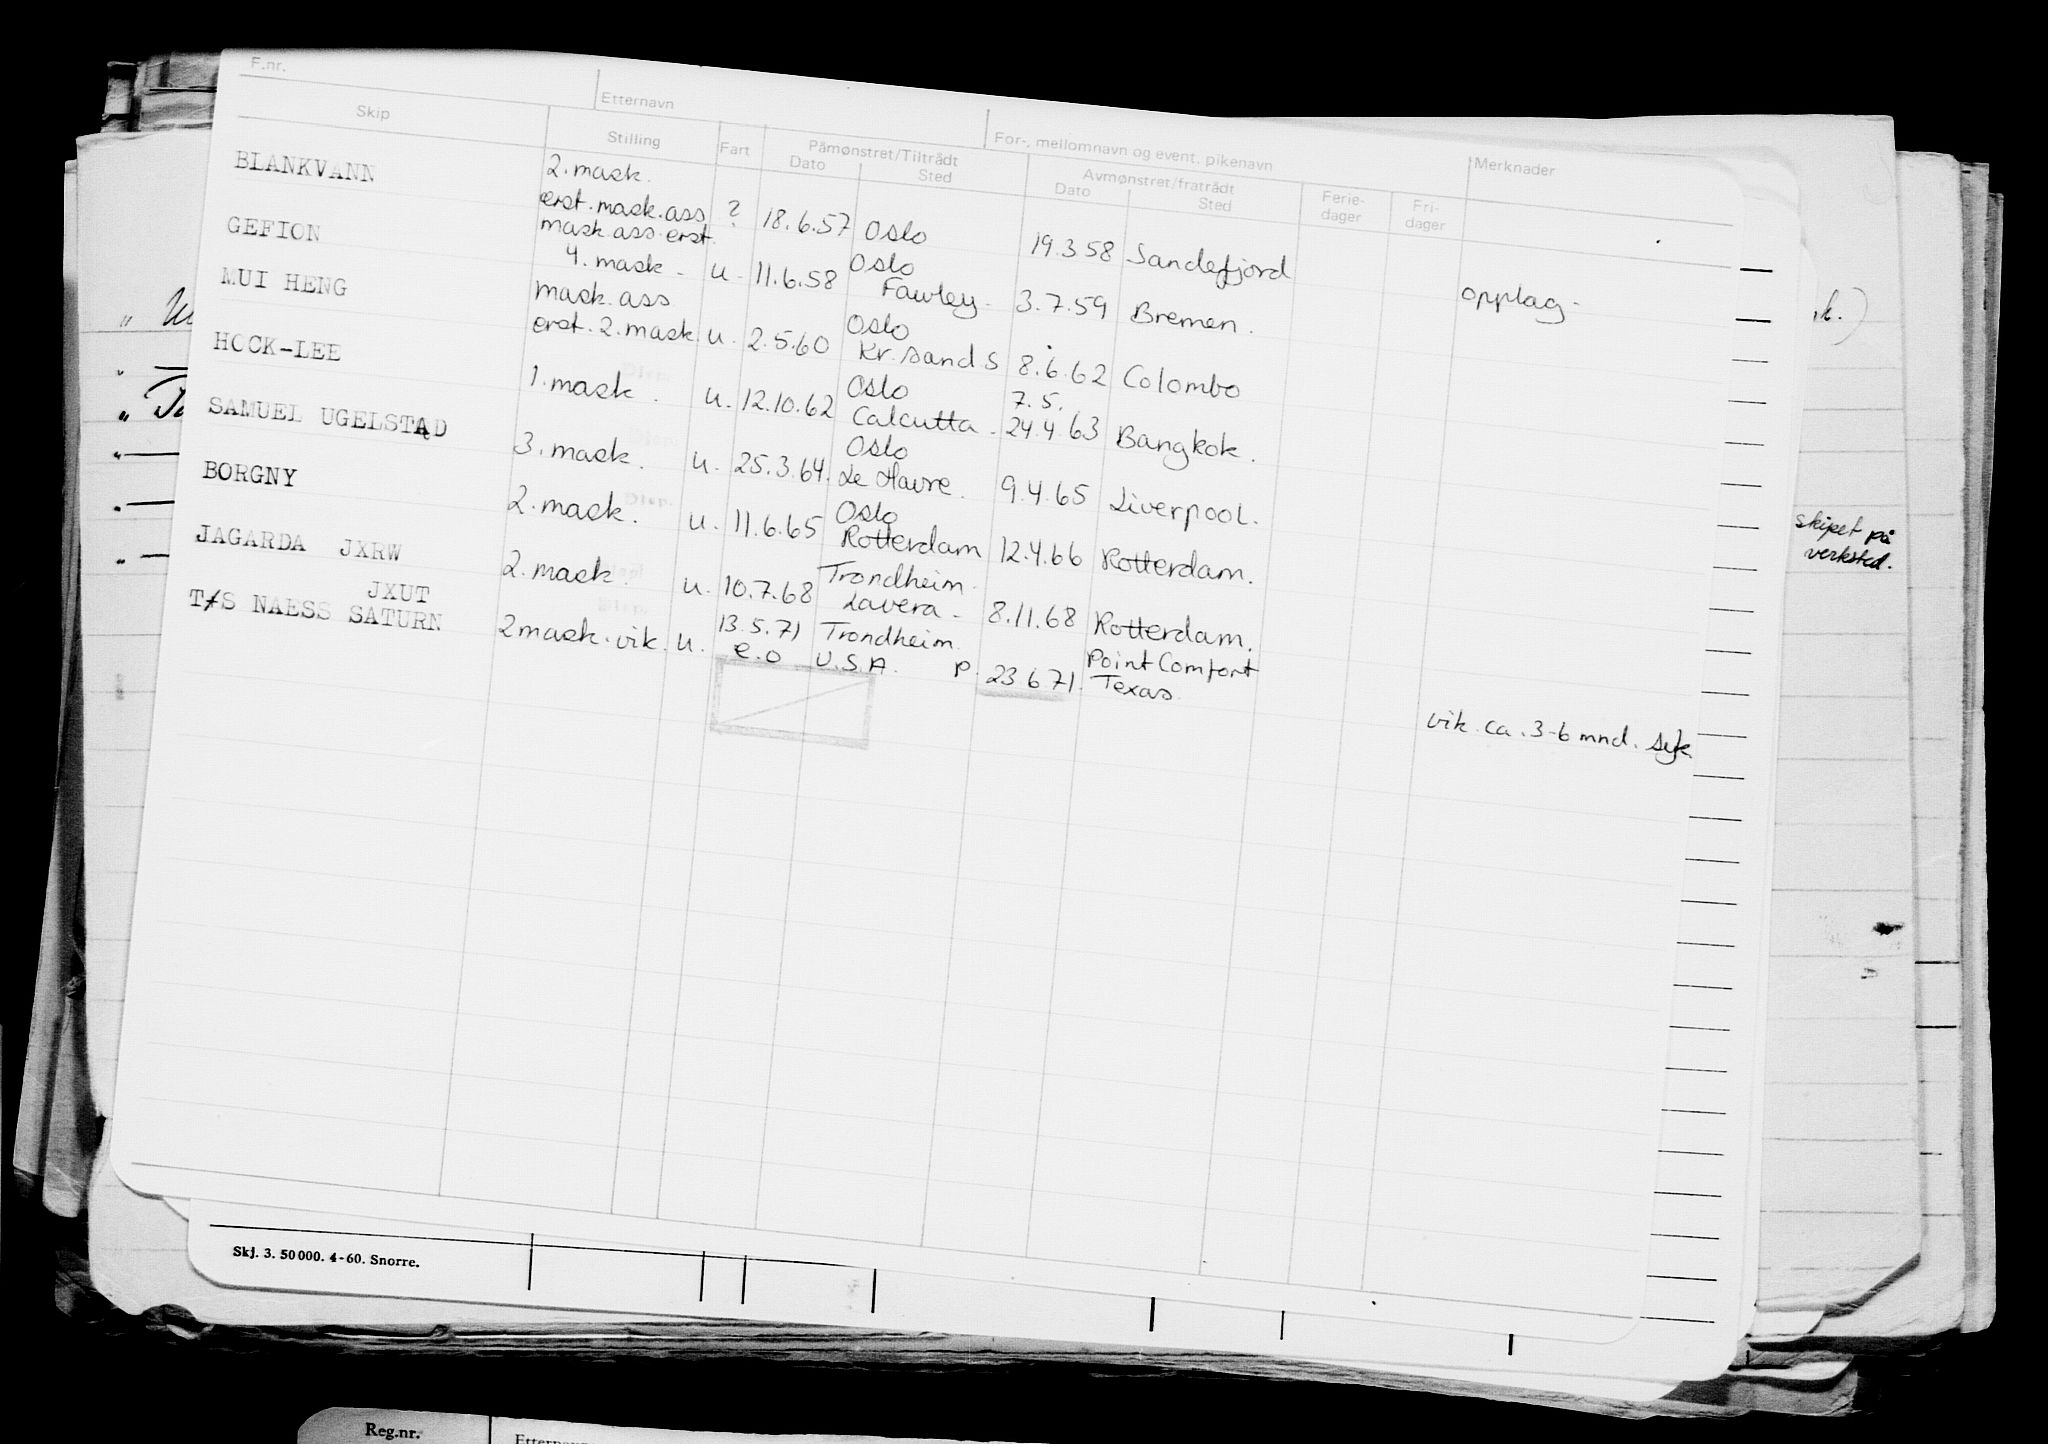 F.nr. Etternavn For-, mellomnavn og event. pikenavn Merknader
Skip Stilling Fart Påmønstret/Tiltrådt Dato Sted Avmønstret/fratrådt Dato Sted Ferie-dager Fri-dager
BLANKVANN 2. mask.
erst. mask. ass ? 18.6.57 Oslo 19.3 58 Sandefjord opplag -
GEFION mask. ass. erst. Oslo
4. mask - u - 11.6.58 Fawley - 3.7.59 Bremen.
MUI HENG mask. ass Oslo
erst. 2. mask. u. 2.5.60 Kr. sand S 8.6.62 Colombo
HOCK-LEE 1. mask. Oslo 7.5.
u. 12.10.62 Calcutta - 24.4.63 Bangkok.
SAMUEL UGELSTAD 3. mask. Oslo
u. 25.3.64. Le Havre. 9.4.65 Liverpool.
BORGNY 2. mask. Oslo
u. 11.6.65 Rotterdam 12.4.66 Rotterdam.
JAGARDA JXRW 2. mask. Trondheim.
u. 10.7.68 Lavera - 8.11.68 Rotterdam.
JXUT
T/S NAESS SATURN 2 mask. vik. u. 13.5.71 Trondheim. Point Comfort
e.o. U.S.A. p. 23 6 71. Texas. vik. ca. 3-6 mnd. syk
k.)
skipet på
verksted.
Skj. 3. 50 000. 4-60. Snorre.
Reg.nr. Etternavn